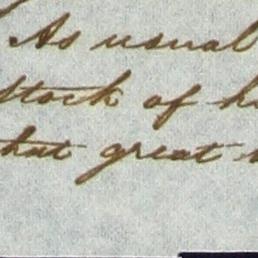 As usual
stock of
that great